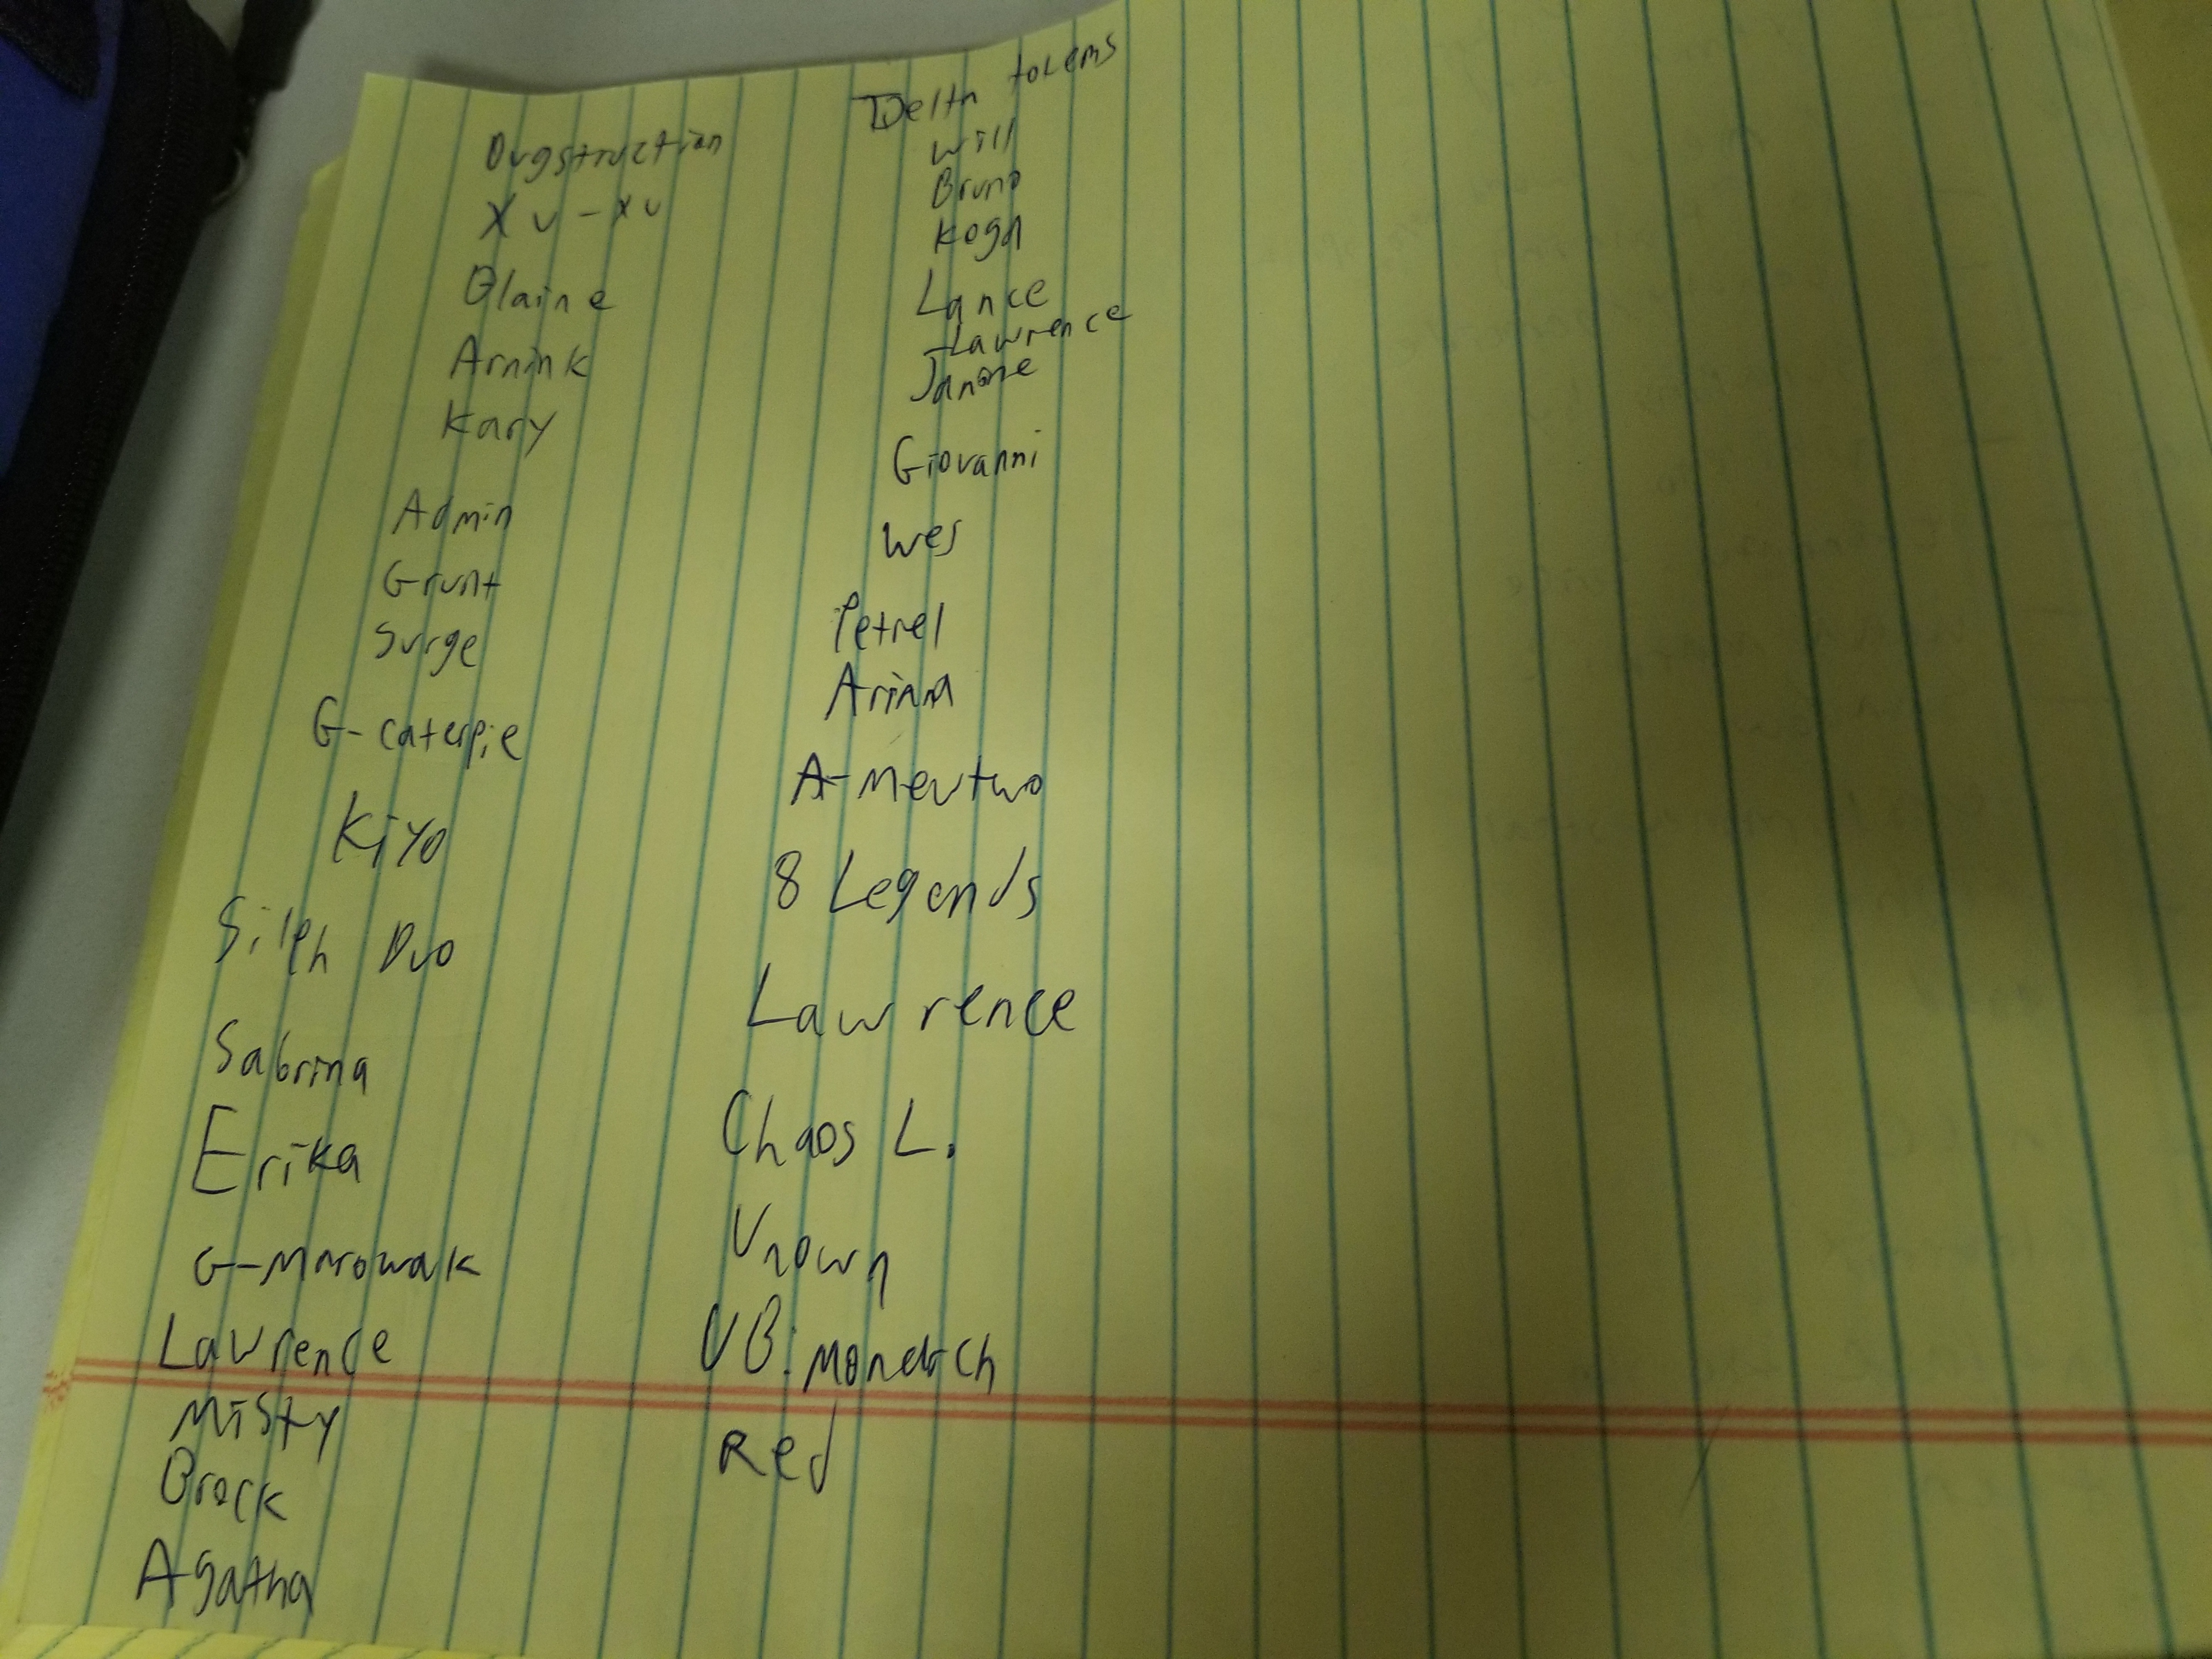 Dugstruction
XU-XU
Blaine
Arnink
Kary
Admin
Grunt
Surge
G-caterpie
Kiyo
Silph Duo
Sabrina
Erika
G-Marowak
Lawrence
Misty
Brock
Agatha
Delta totems
Will
Bruno
Koga
Lance
-Lawrence
Janine
Giovanni
Wes
Petrel
Ariana
A-Mewtwo
8 Legends
Lawrence
Chaos L.
Unown
UB:
Red